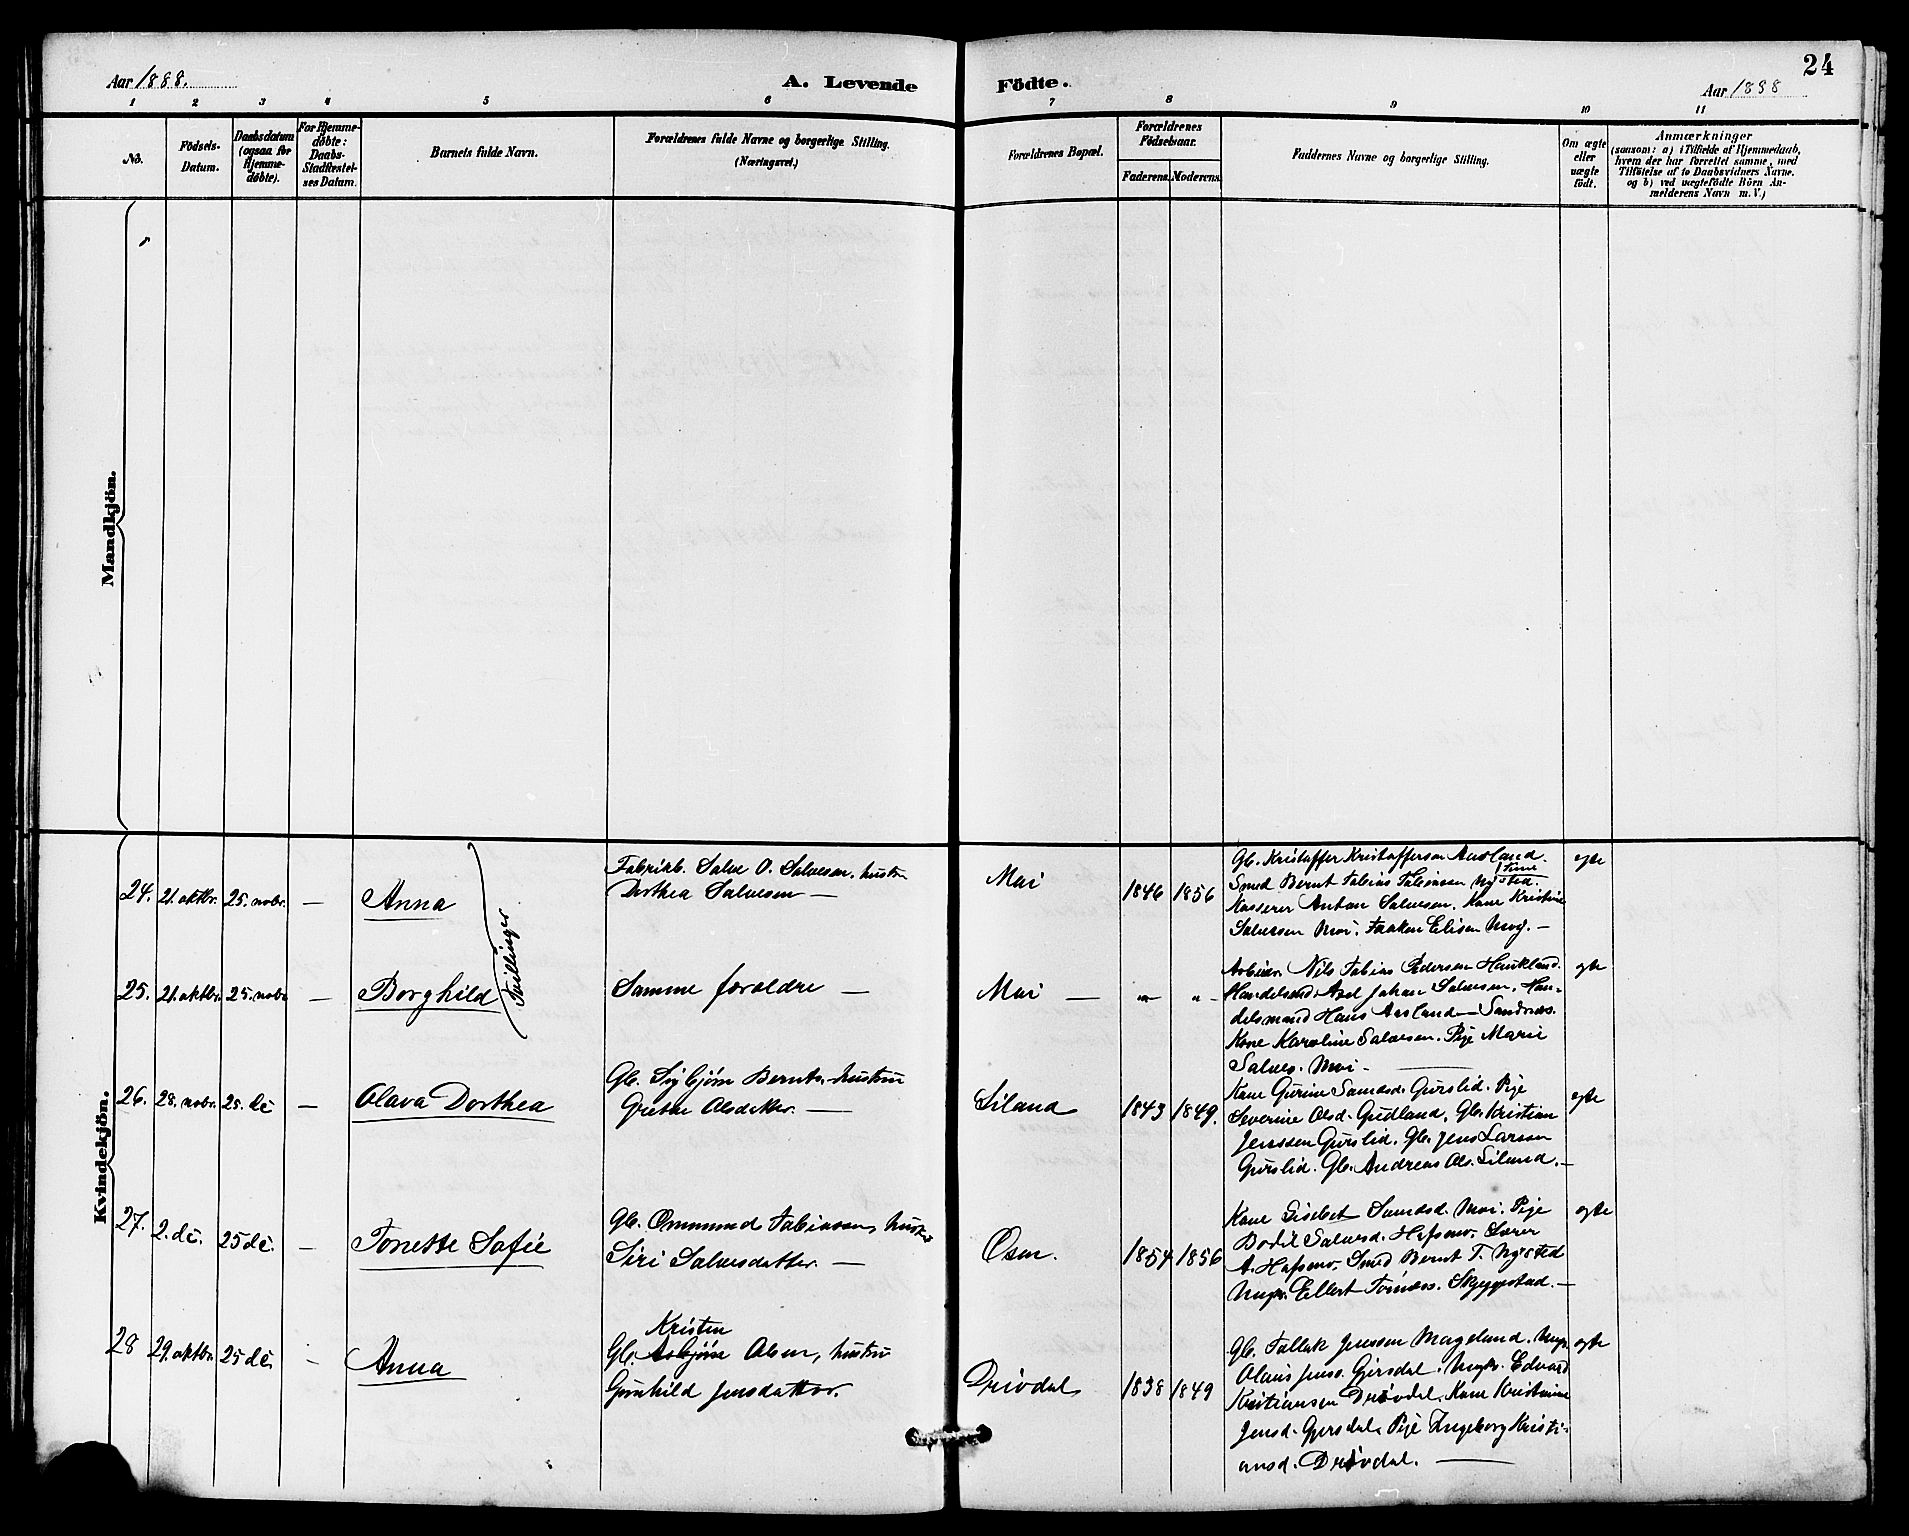 Aar 1888.
A. Levende Födte.
24
Aar 1888
1 2 3 4 5 6 7 8 9 10 11
No.
Födsels-Datum.
Daabsdatum (ogsaa for Hjemme-døbte).
For Hjemme-døbte: Daabs-Stadfæstel-ses Datum.
Barnets fulde Navn.
Forældrenes fulde Navne og borgerlige Stilling. (Næringsvei.)
Forældrenes Bopæl.
Forældrenes Födselsaar.
Faderens. Moderens.
Faddernes Navne og borgerlige Stilling.
Om ægte eller uægte født.
Anmærkninger
(saasom: a) i Tilfælde af Hjemmedaab,
hvem der har forrettet samme, med
Tilföielse af to Daabsvidners Navne.
og b) ved uægtefødte Börn An-
melderens Navn m. V.)
Mandkjön.
Kvindekjön.
24. 21. oktbr. 25. novbr. — Anna
Tvillinger
Fabrikb. Salve O. Salvesen, hustru
Dorthea Salvesen —
Moi 1846 1856
Gb. Kristoffer Kristoffersen Aasland.
Smed Bernt Tobias Tobiassen Nysted.
Kasserer Anton Salvesen. Kone Kristine
Salvesen Moi. Frøken Elisen Moy. —
egte
25. 21. oktbr. 25. novbr — Borghild
Samme forældre —
Moi — " "
Arbeider Nils Tobias Pedersen Haukland.
Handelsmd. Axel Johan Salvesen. Han-
delsmand Hans Aasland — Sandnæs.
Kone Karoline Salvesen. Pige Marie
Salves. Moi. —
egte
26. 28. novbr. 25. dc — Olava Dorthea
Gb. Sigbjørn Bernts. hustru
Grethe Olsdatter. —
Liland 1843 1849.
Kone Gurine Samdsd. Gurslid. Pige
Severine Olsd. Gudland. Gb. Kristian
Jenssen Gurslid. Gb. Jens Larsen
Gurslid. Gb. Andreas Ols. Liland. —
egte
27. 2. dc. 25 dc. — Tonette Sofie
Gb. Ommund Tobiassen, hustru
Siri Salvesdatter. —
Osen. 1854 1856
Kone Lisebet Samdsd. Moi. Pige
Bodil Salvesd. Hafsmo. Lærer
A. Hafsmo. Smed Bernt T. Nysted
Ungk. Ellert Tønnes. Skeggestad. —
egte
28 29. oktbr. 25 dc. — Anna
Kristen
Gb. Asbjørn Olsen, hustru
Gunhild Jensdatter.
Drivdal 1838 1849
Gb. Tallak Jenssen Mageland. Ungk.
Olaus Jenss. Gjersdal. Ungk. Edvard
Kristiansen Drivdal. Kone Kristine
Jensd. Gjersdal. Pige Ingeborg Kristi-
ansd. Drivdal. —
egte